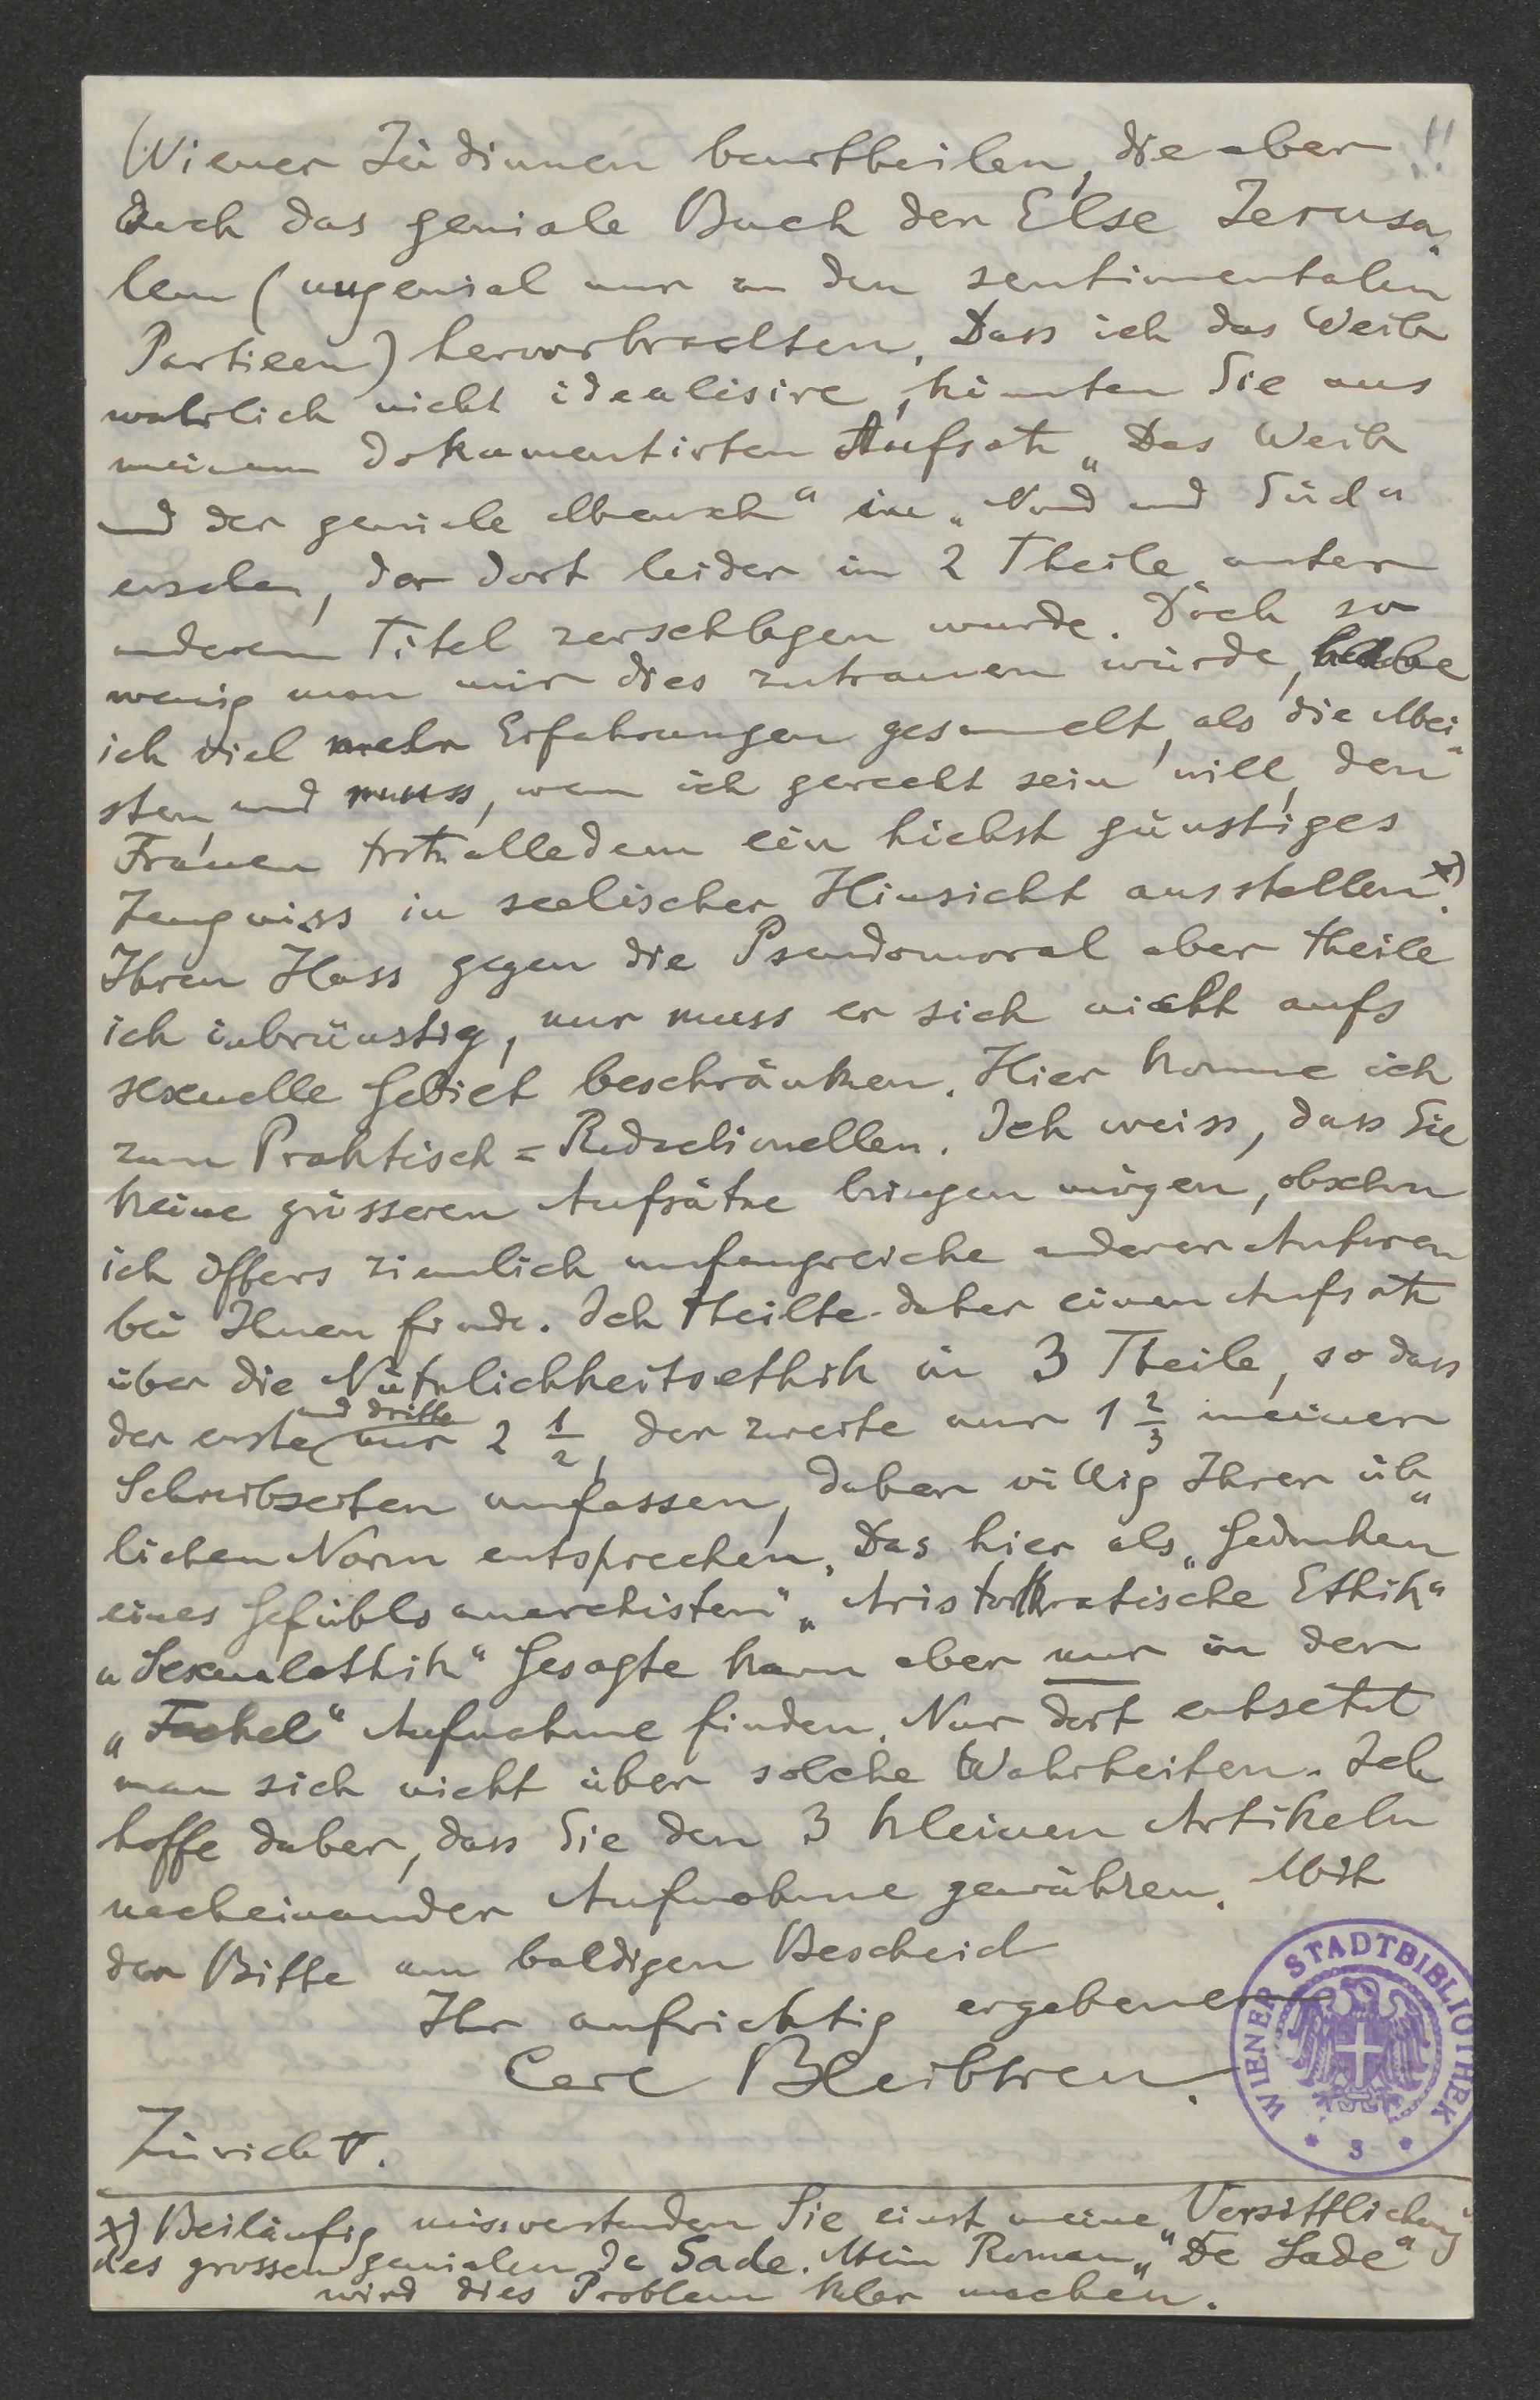 Wiener Jüdinnen beurtheilen, die aber !!
doch das geniale Buch der Else Jerusa-
lem (ungenial nur in den sentimentalen
Partieen) hervorbrachten. Dass ich das Weib
wahrlich nicht idealisire, könnten Sie aus
meinem dokumentirten Aufsatz „Das Weib
und der geniale Mensch“ in „Nord und Süd“
ersehen, der dort leider in 2 Theile unter
anderem Titel zerschlagen wurde. Doch so
wenig man mir dies zutrauen würde, habe
ich viel mehr Erfahrungen gesammelt, als die Mei-
sten und muss, wenn ich gerecht sein will, den
Frauen trotzalledem ein höchst günstiges
Zeugniss in seelischer Hinsicht ausstellen.x)
Ihren Hass gegen die Pseudomoral aber theile
ich inbrünstig, nur muss er sich nicht aufs
sexuelle Gebiet beschränken. Hier komme ich
zum Praktisch=Redactionellen. Ich weiss, dass Sie
keine grösseren Aufsätze bringen mögen, obschon
ich öffers ziemlich umfangreiche anderer Autoren
bei Ihnen finde. Ich theilte daher einen Aufsatz
über die Nützlichkeitsethik in 3 Theile, so dass
der erste und dritte nur 2 1/2, der zweite nur 1 2/3 meiner
Schreibseiten umfassen, daher völlig Ihrer üb-
lichen Norm entsprechen. Das hier als „Gedanken
eines Gefühlsanarchisten“ „Aristokratische Ethik“
„Sexualethik“ Gesagte kann aber nur in der
„Fackel“ Aufnahme finden. Nur dort entsetzt
man sich nicht über solche Wahrheiten. Ich
hoffe daher, dass Sie den 3 kleinen Artikeln
nacheinander Aufnahme gewähren. Mit
der Bitte um baldigen Bescheid
Ihr aufrichtig ergebener
Carl Bleibtreu.
Zürich V.
x) Beiläufig missverstanden Sie einst meine „Versittlichung“
des grossen genialen De Sade. Mein Roman „De Sade“
wird dies Problem klar machen.
WIENER STADTBIBLIOTHEK
* 3 *